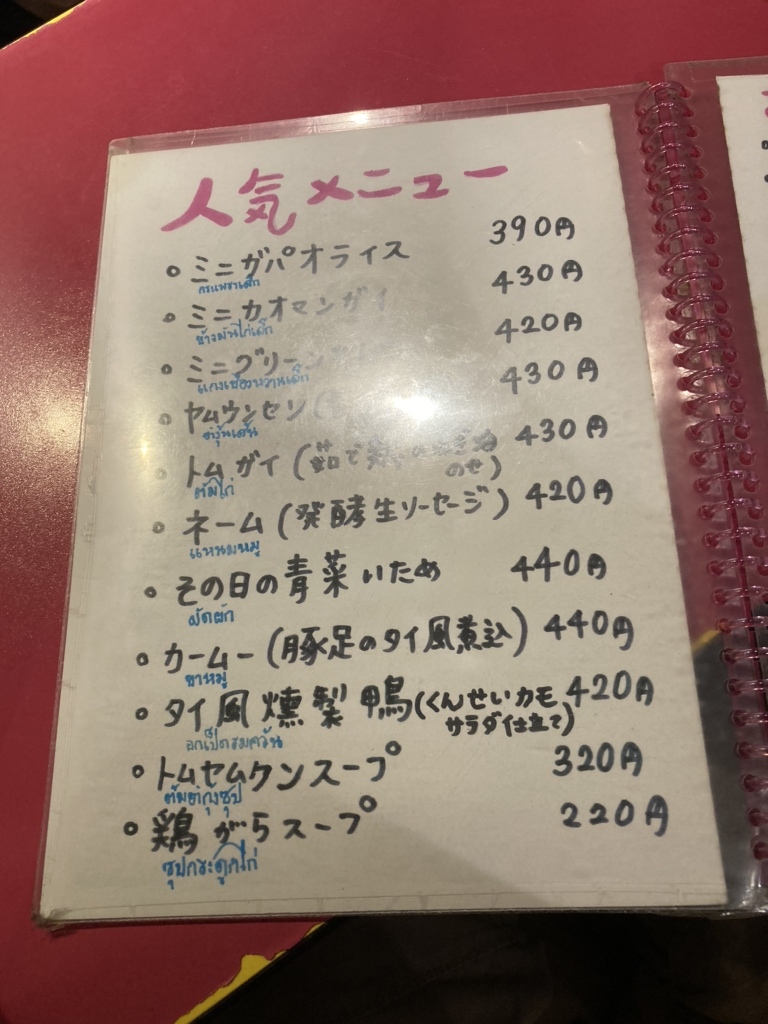 人気メニュー
・ミニガパオライス 390円
กระเพราเด็ก
・ミニカオマンガイ 430円
ข้าวมันไก่เด็ก
・ミニグリーン 420円
แกงเขียวหวานเด็ก
・ヤムウンセン 430円
ยำวุ้นเส้น
・トムガイ(茹で 430円
のせ)
ต้มไก่
・ネーム(発酵生ソーセージ) 420円
แหนมหมู
・その日の青菜いため 440円
ผัดผัก
・カームー(豚足のタイ風煮込) 440円
ขาหมู
・タイ風燻製鴨(くんせいカモ 420円
サラダ仕立て)
อกเป็ดรมควัน
・トムヤムクンスープ 320円
ต้มยำกุงซุป
・鶏がらスープ 220円
ซุปกระดูกไก่